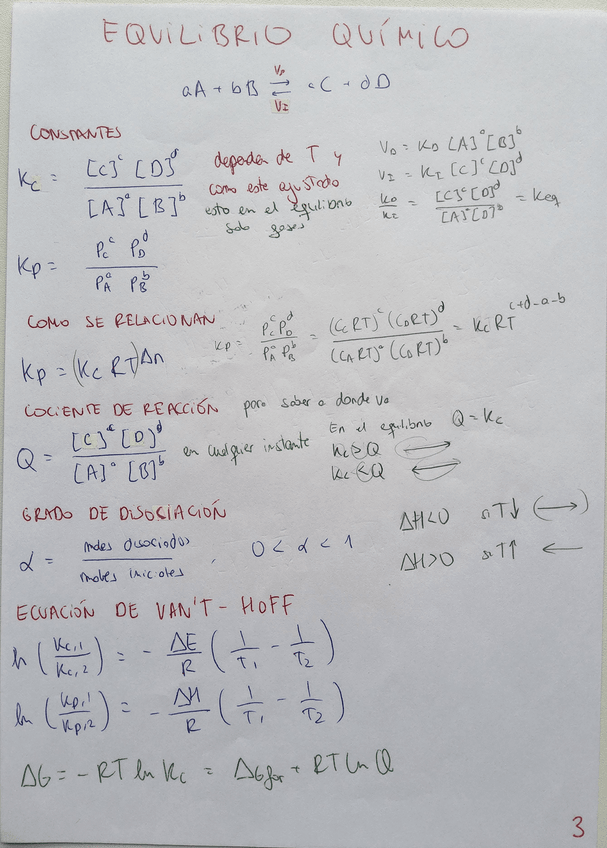 EQUILIBRIO QUÍMICO
aA + bB ⇄ cC + dD
V_D
V_I
CONSTANTES
K_C = [C]^c [D]^d / [A]^a [B]^b
dependen de T y
como este ajustado
esto en el equilibrio
solo gases
V_D = K_D [A]^a [B]^b
V_I = K_I [C]^c [D]^d
K_D / K_I = [C]^c [D]^d / [A]^a [D]^b = K_eq
K_P = P_C^c P_D^d / P_A^a P_B^b
COMO SE RELACIONAN
K_P = P_C^c P_D^d / P_A^a P_B^b = (C_C RT)^c (C_D RT)^d / (C_A RT)^a (C_D RT)^b = K_C RT^(c+d-a-b)
K_P = (K_C RT)^Δn
COCIENTE DE REACCIÓN para saber a donde va
Q = [C]^c [D]^d / [A]^a [B]^b en cualquier instante
En el equilibrio Q = K_C
K_C > Q →
K_C < Q ←
GRADO DE DISOCIACIÓN
α = moles disociados / moles iniciales , 0 < α < 1
ΔH<0 si T↓ (→)
ΔH>0 si T↑ ←
ECUACIÓN DE VAN'T-HOFF
ln (K_C,1 / K_C,2) = - ΔE/R (1/T_1 - 1/T_2)
ln (K_P,1 / K_P,2) = - ΔH/R (1/T_1 - 1/T_2)
ΔG = -RT ln K_C = ΔG_for + RT ln Q
3